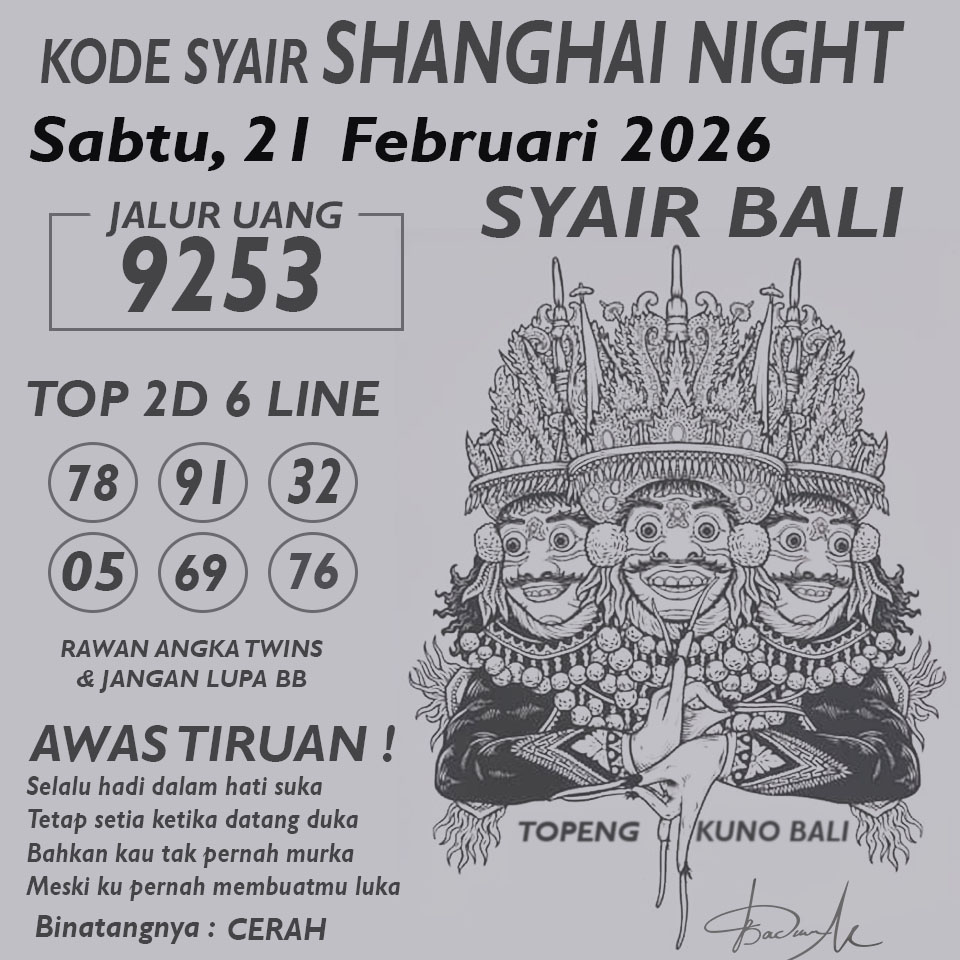 KODE SYAIR SHANGHAI NIGHT
Sabtu, 21 Februari 2026
SYAIR BALI
JALUR UANG
9253
TOP 2D 6 LINE
78 91 32
05 69 76
RAWAN ANGKA TWINS
& JANGAN LUPA BB
AWAS TIRUAN !
Selalu hadi dalam hati suka
Tetap setia ketika datang duka
Bahkan kau tak pernah murka
Meski ku pernah membuatmu luka
Binatangnya : CERAH
TOPENG KUNO BALI